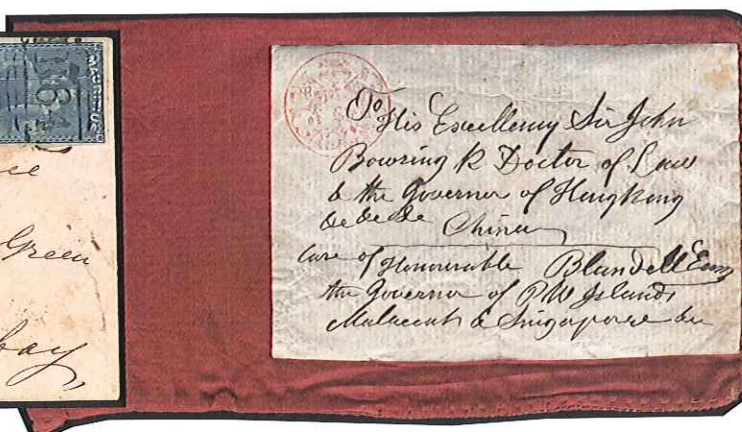 MAURITIUS
Green
To
His Excellency Sir John
Bowring K Doctor of Law
& the Governor of Hongkong
&c &c &c China
Care of Honourable Blundell Esqr
the Governor of P W Islands
Malaccah & Singapore &c